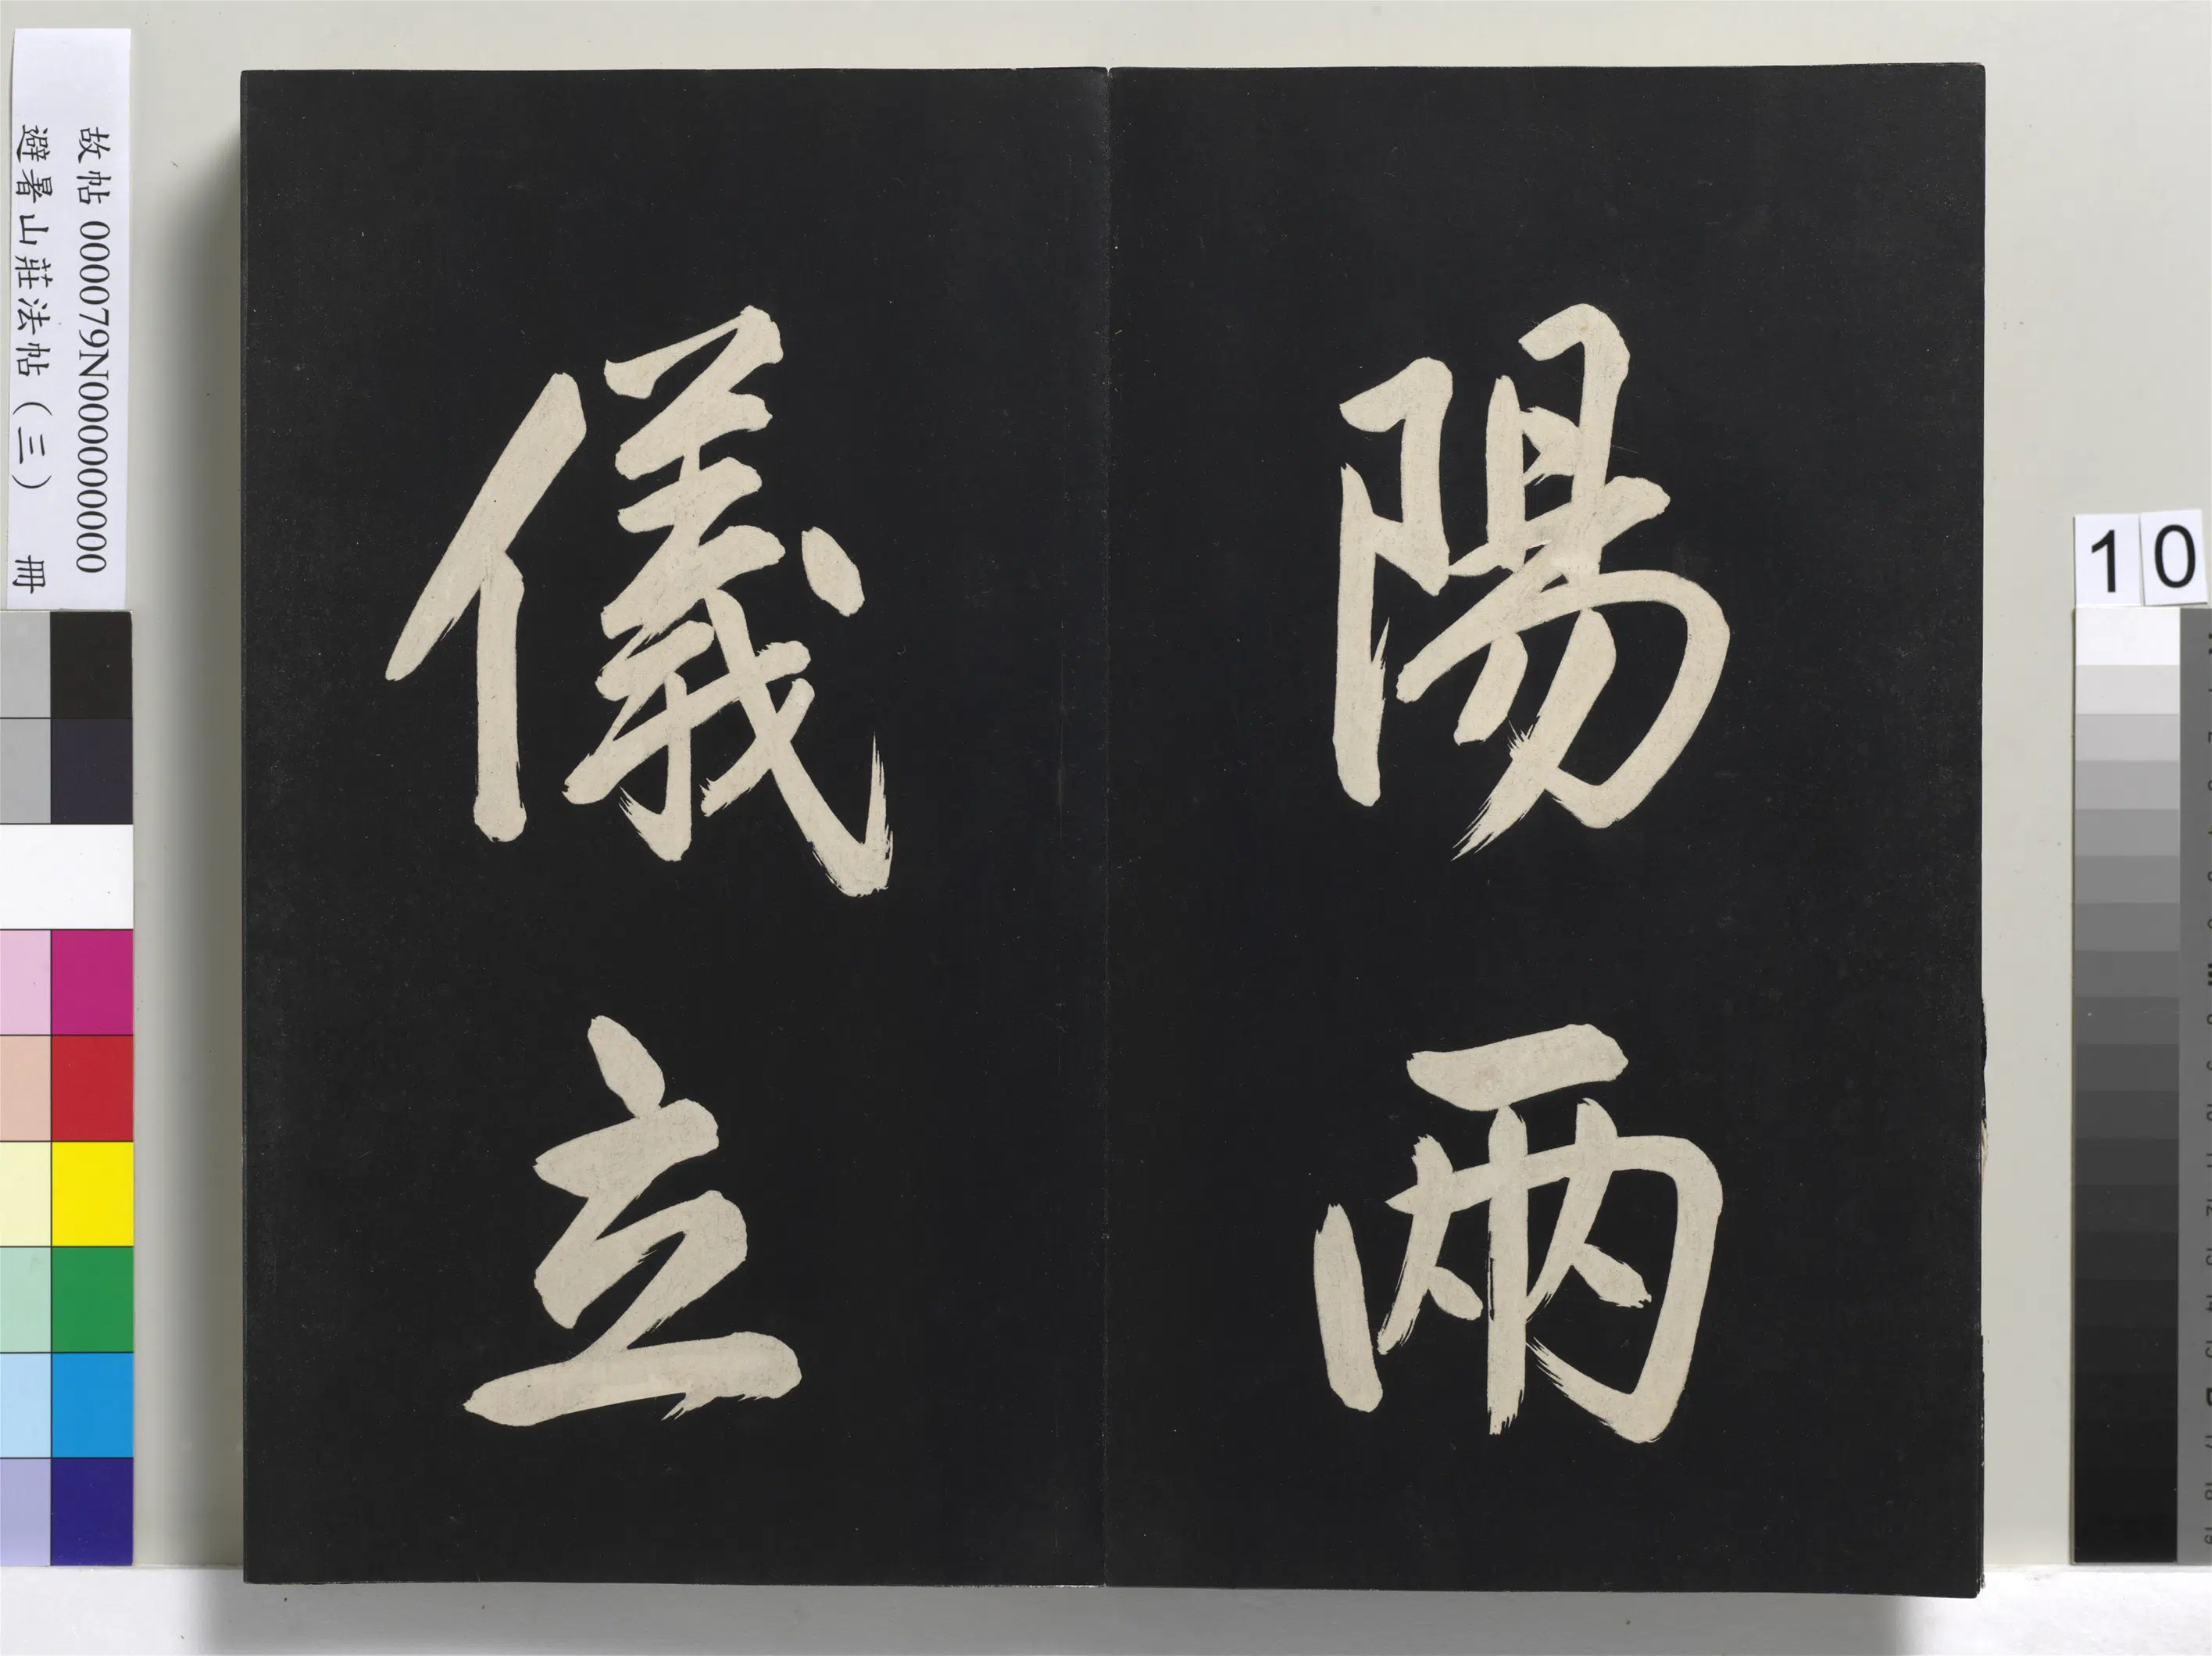 陽兩
儀立
故帖 000079N000000000
避暑山莊法帖（三） 冊
10